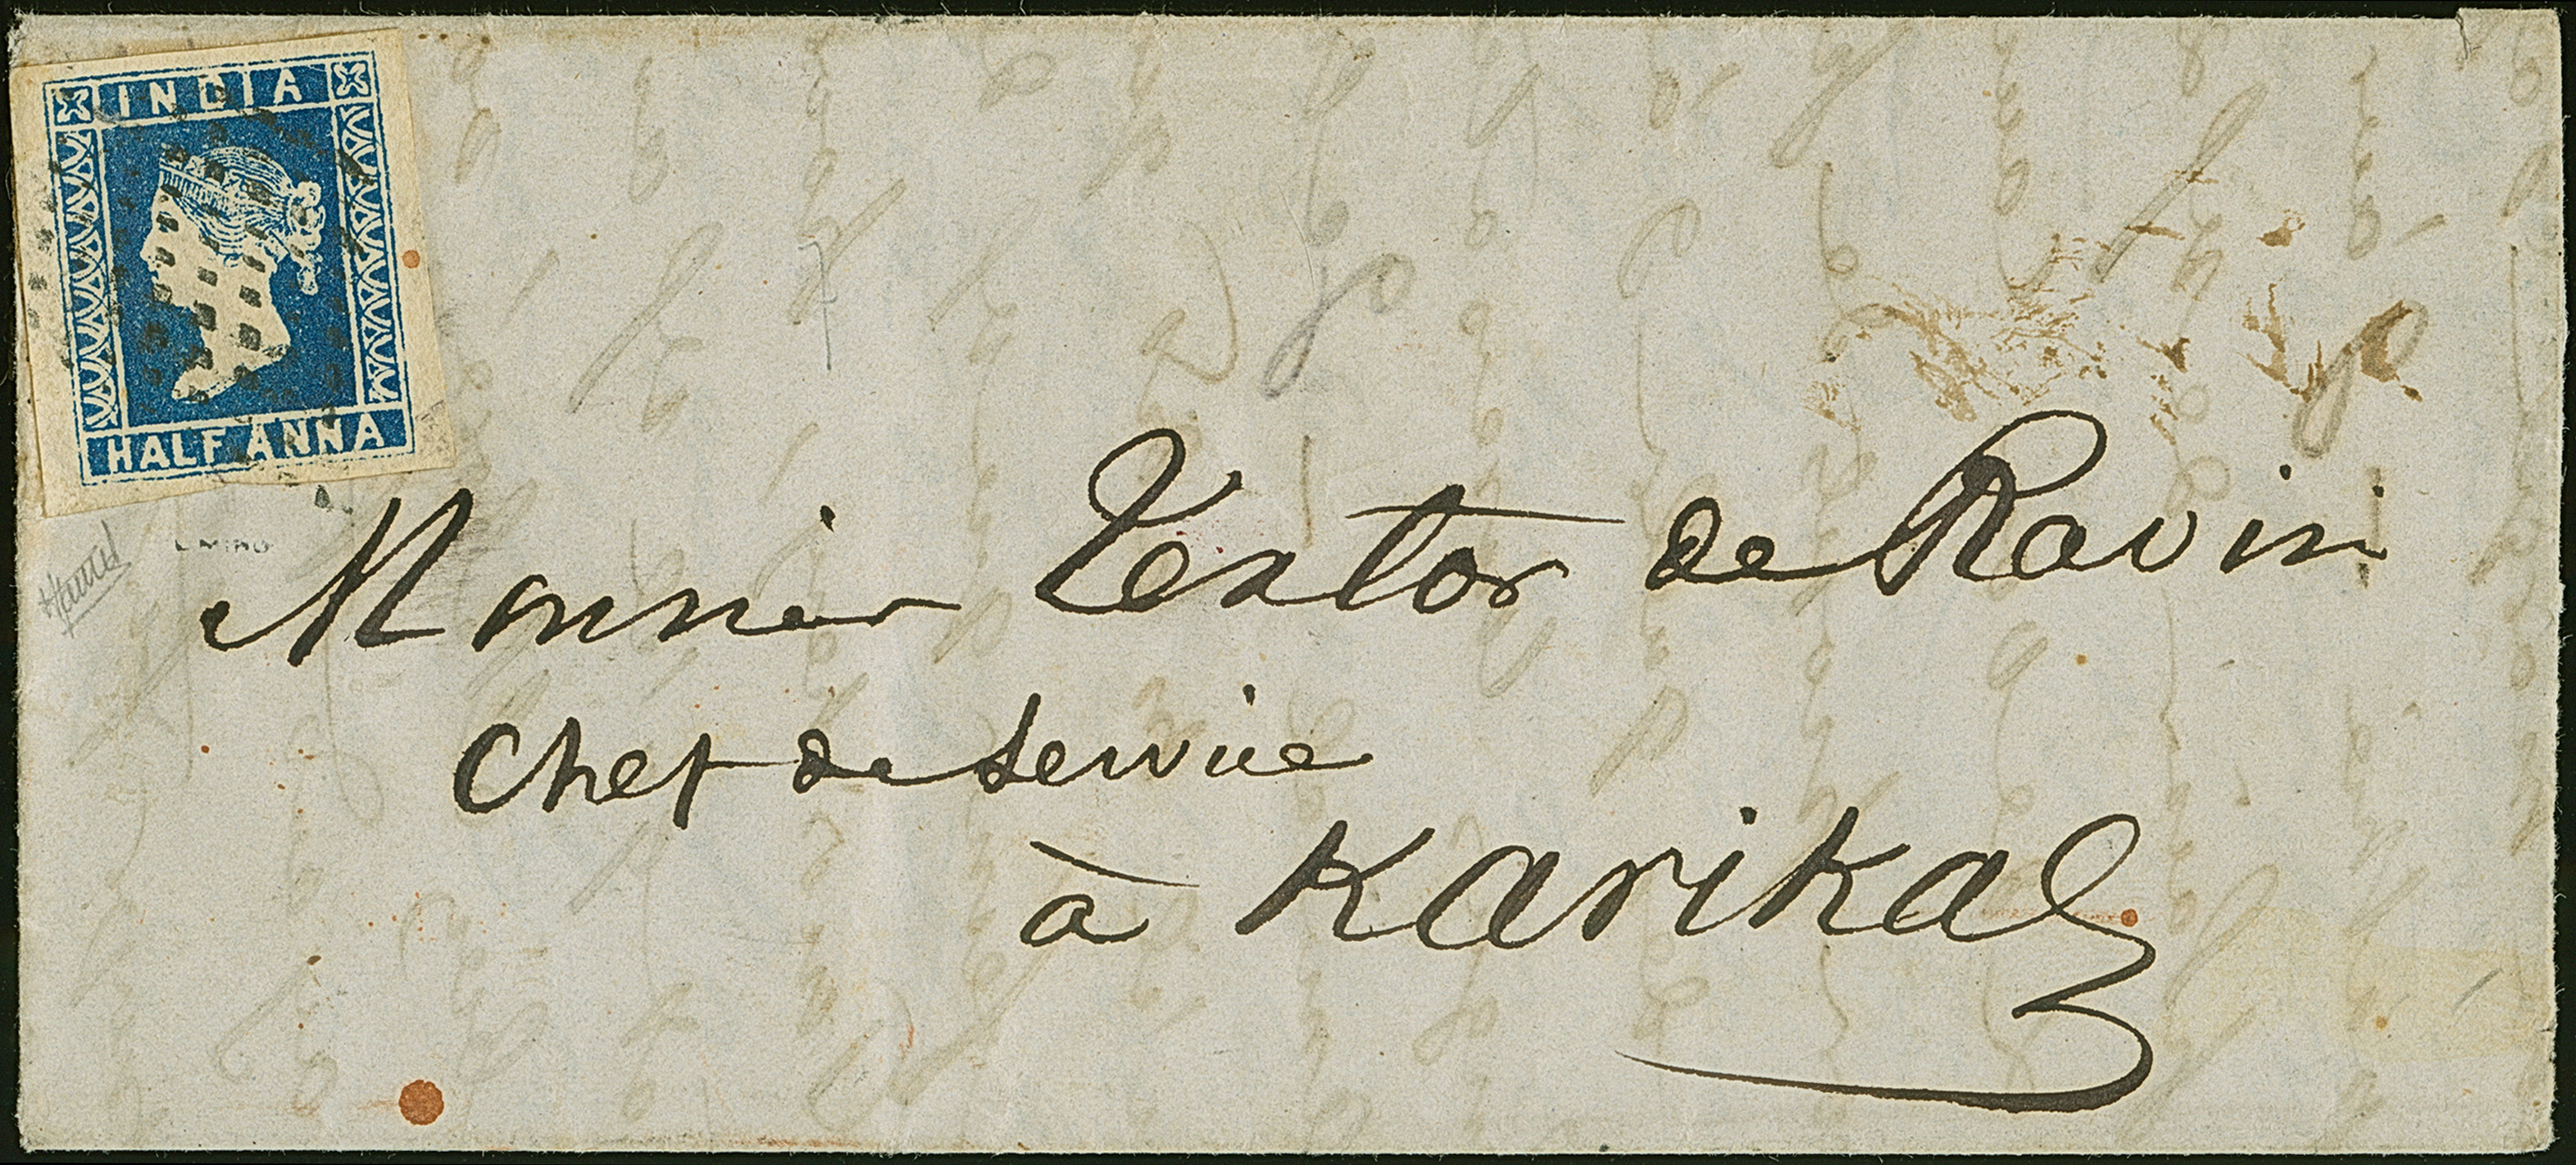 INDIA
HALF ANNA
Monsieur Textor de Ravisi
Chef de service
à Karikal